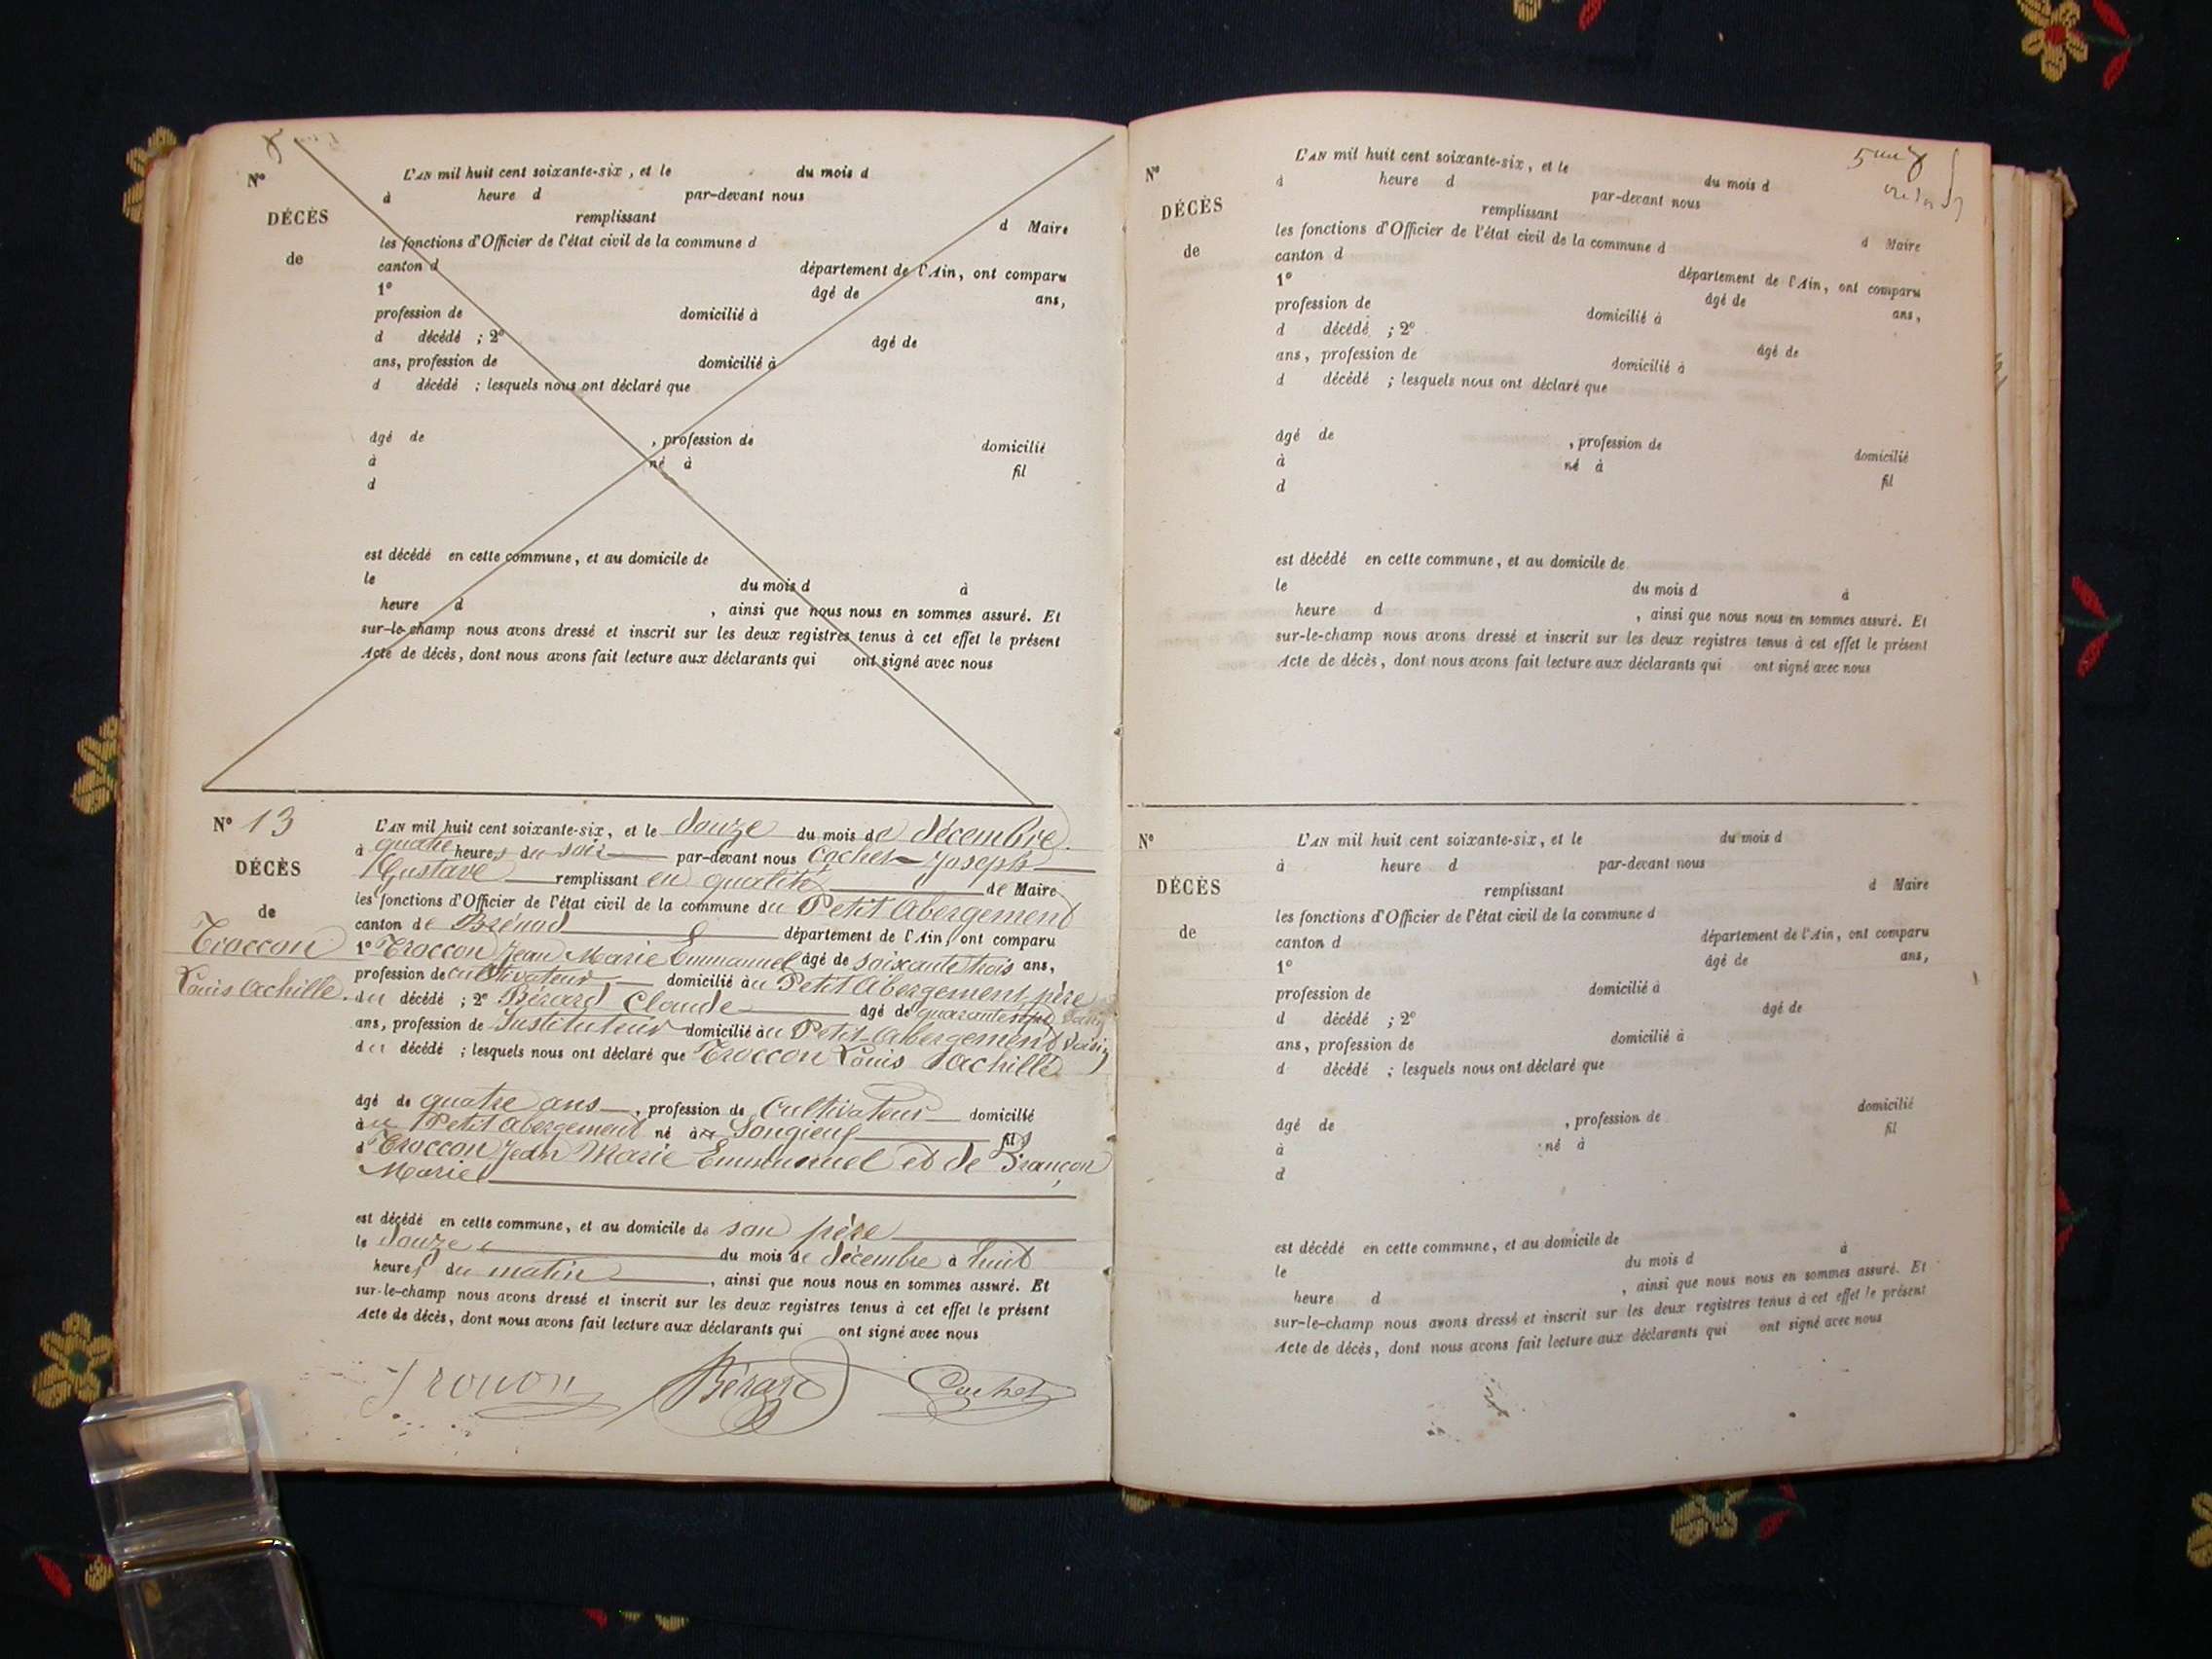 N° L'AN mil huit cent soixante-six, et le du mois d
à heure d par-devant nous
DÉCÈS remplissant d Maire
les fonctions d'Officier de l'état civil de la commune d
de canton d département de l'Ain, ont comparu
1° âgé de ans,
profession de domicilié à
d décédé ; 2° âgé de
ans, profession de domicilié à
d décédé ; lesquels nous ont déclaré que
âgé de , profession de domicilié
à né à fil
d
est décédé en cette commune, et au domicile de
le du mois d à
heure d , ainsi que nous nous en sommes assuré. Et
sur-le-champ nous avons dressé et inscrit sur les deux registres tenus à cet effet le présent
Acte de décès, dont nous avons fait lecture aux déclarants qui ont signé avec nous
N° 13 L'AN mil huit cent soixante-six, et le douze du mois de décembre
à quatre heures du soir par-devant nous Cachet Joseph
DÉCÈS Gustave remplissant en qualité de Maire
les fonctions d'Officier de l'état civil de la commune du Petit Abergement
de canton de Brénod département de l'Ain, ont comparu
Troccon 1° Troccon Jean Marie Emmanuel âgé de soixante trois ans,
profession de cultivateur domicilié au Petit Abergement père
Louis Achille. du décédé ; 2° Bérard Claude âgé de quarante sept
ans, profession de Instituteur domicilié au Petit-Abergement voisin
du décédé ; lesquels nous ont déclaré que Troccon Louis Achille
âgé de quatre ans , profession de Cultivateur domicilié
au Petit Abergement né à Songieu fils
d Troccon Jean Marie Emmanuel et de Françon
Marie
est décédé en cette commune, et au domicile de son père
le douze du mois de décembre à huit
heures du matin , ainsi que nous nous en sommes assuré. Et
sur-le-champ nous avons dressé et inscrit sur les deux registres tenus à cet effet le présent
Acte de décès, dont nous avons fait lecture aux déclarants qui ont signé avec nous
Trocon Bérard Cachet
N° L'AN mil huit cent soixante-six, et le du mois d
à heure d par-devant nous
DÉCÈS remplissant d Maire
les fonctions d'Officier de l'état civil de la commune d
de canton d département de l'Ain, ont comparu
1° âgé de ans,
profession de domicilié à
d décédé ; 2° âgé de
ans, profession de domicilié à
d décédé ; lesquels nous ont déclaré que
âgé de , profession de domicilié
à né à fil
d
est décédé en cette commune, et au domicile de
le du mois d à
heure d , ainsi que nous nous en sommes assuré. Et
sur-le-champ nous avons dressé et inscrit sur les deux registres tenus à cet effet le présent
Acte de décès, dont nous avons fait lecture aux déclarants qui ont signé avec nous
N° L'AN mil huit cent soixante-six, et le du mois d
à heure d par-devant nous
DÉCÈS remplissant d Maire
les fonctions d'Officier de l'état civil de la commune d
de canton d département de l'Ain, ont comparu
1° âgé de ans,
profession de domicilié à
d décédé ; 2° âgé de
ans, profession de domicilié à
d décédé ; lesquels nous ont déclaré que
âgé de , profession de domicilié
à né à fil
d
est décédé en cette commune, et au domicile de
le du mois d à
heure d , ainsi que nous nous en sommes assuré. Et
sur-le-champ nous avons dressé et inscrit sur les deux registres tenus à cet effet le présent
Acte de décès, dont nous avons fait lecture aux déclarants qui ont signé avec nous